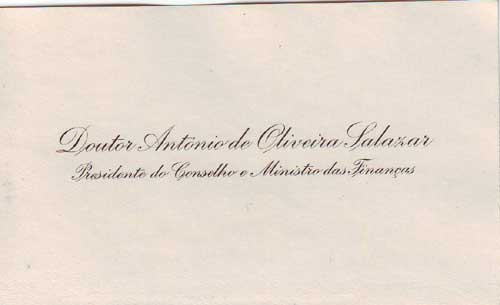 Doutor Antonio de Oliveira Salazar
Presidente do Conselho e Ministro das Finanças